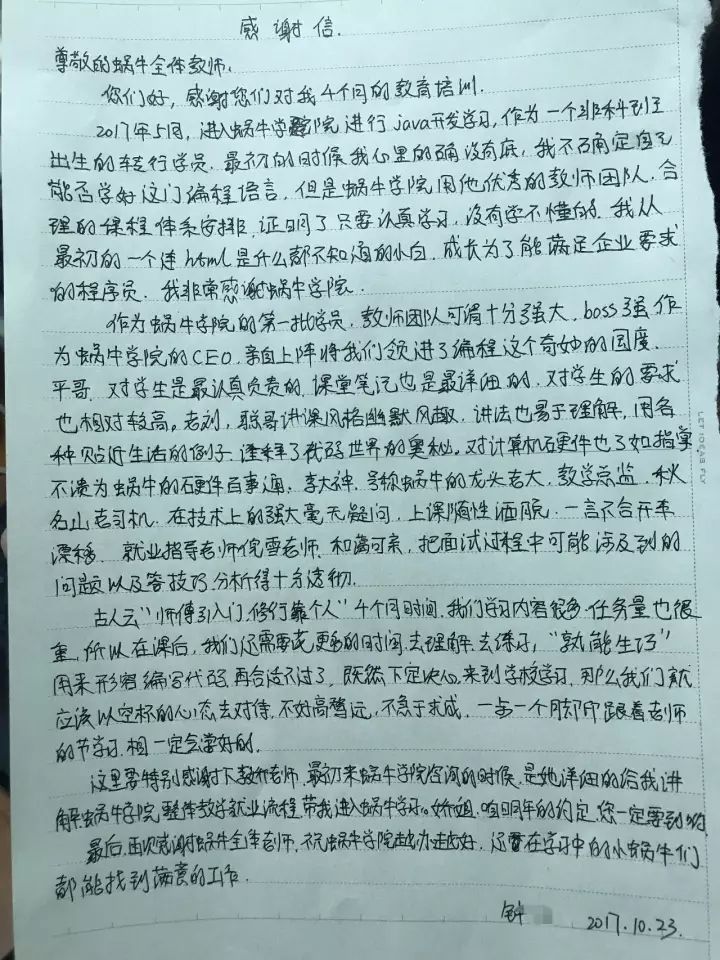 感谢信.
尊敬的蜗牛全体教师.
您们好,感谢您们对我4个月的教育培训.
2017年5月,进入蜗牛学院进行java开发学习,作为一个非科到王
出生的转行学员.最初的时候我心里的确没有底,我不确定自己
能否学好这门编程语言.但是蜗牛学院用他优秀的教师团队.合
理的课程体系安排.证明了只要认真学习,没有学不懂的.我从
最初的一个连html是什么都不知道的小白.成长为了能满足企业要求
的程序员.我非常感谢蜗牛学院.
作为蜗牛学院的第一批学员,教师团队可谓十分强大.boss强作
为蜗牛学院的CEO.亲自上阵将我们领进了编程这个奇妙的国度.
平哥.对学生是最认真负责的.课堂笔记也是最详细的.对学生的要求
也相对较高。老刘,聪哥讲课风格幽默风趣.讲法也易于理解,用各
种贴近生活的例子.诠释了代码世界的奥秘.对计算机硬件也了如指掌
不愧为蜗牛的硬件百事通.李大神.号称蜗牛的龙头老大,教学总监.秋
名山老司机.在技术上的强大毫无疑问,上课随性洒脱.一言不合开车
漂移.就业指导老师倪雪老师.和蔼可亲,把面试过程中可能涉及到的
问题以及答技巧.分析得十分透彻.
古人云"师傅引入门,修行靠个人"4个月时间.我们学习内容很多.任务量也很
重,所以在课后,我们还需要花更多的时间.去理解.去练习,"孰能生巧"
用来形容编写代码.再合适不过了.既然下定决心.来到学校学习.那么我们就
应该以空杯的心态去对待.不好高骛远,不急于求成.一步一个脚印跟着老师
的节学习.相一定会学好的.
这里要特别感谢下教娇老师.最初来蜗牛学院咨询的时候.是她详细的给我讲
解蜗牛学院.整体教学就业流程.带我进入蜗牛学习。娇姐.咱明年的约定.您一定要到哟
最后.再次感谢蜗牛全体老师.祝蜗牛学院越办越好.还要在学习中的小蜗牛们
都能找到满意的工作.
钟
2017.10.23.
LET IDEAS FLY